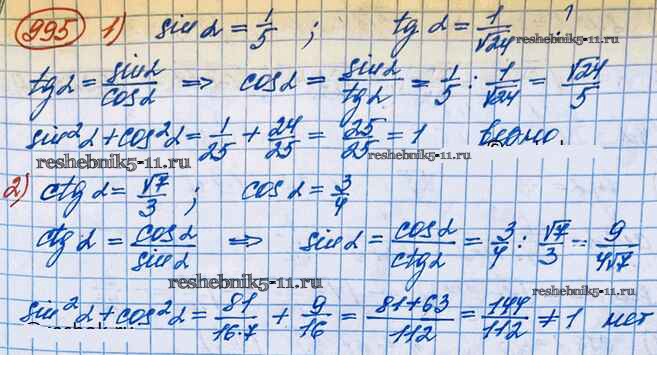 995 1) sin α = 1/5 ; tg α = 1/√24 . ?
reshebnik5-11.ru
tg α = sin α/cos α ⇒ cos α = sin α/tg α = 1/5 : 1/√24 = √24/5
sin²α + cos²α = 1/25 + 24/25 = 25/25 = 1 верно
reshebnik5-11.ru reshebnik5-11.ru
2) ctg α = √7/3 ; cos α = 3/4
ctg α = cos α/sin α ⇒ sin α = cos α/ctg α = 3/4 : √7/3 = 9/4√7
reshebnik5-11.ru reshebnik5-11.ru
sin²α + cos²α = 81/16·7 + 9/16 = 81+63/112 = 144/112 ≠ 1 нет